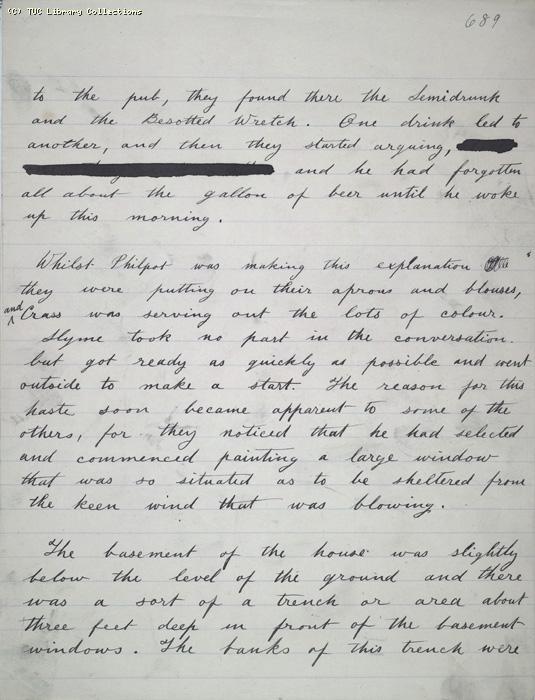 (C) TUC Library Collections
689
to the pub, they found there the Semidrunk
and the Besotted Wretch. One drink led to
another, and then they started arguing,
and he had forgotten
all about the gallon of beer until he woke
up this morning.
Whilst Philpot was making this explanation
they were putting on their aprons and blouses,
and Crass was serving out the lots of colour.
Slyme took no part in the conversation.
but got ready as quickly as possible and went
outside to make a start. The reason for this
haste soon became apparent to some of the
others, for they noticed that he had selected
and commenced painting a large window
that was so situated as to be sheltered from
the keen wind that was blowing.
The basement of the house was slightly
below the level of the ground and there
was a sort of a trench or area about
three feet deep in front of the basement
windows. The banks of this trench were